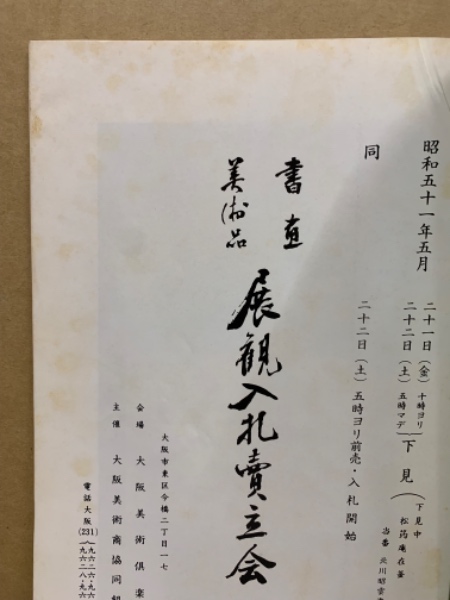 昭和五十一年五月
二十一日（金）十時ヨリ
二十二日（土）五時マデ
下見
下見中
松筠庵在釜
当番
同
二十二日（土）五時ヨリ前売・入札開始
書画
美術品
展観入札賣立会
大阪市東区今橋二丁目一七
会場　大阪美術倶楽
主催　大阪美術商協同組
電話大阪(231)